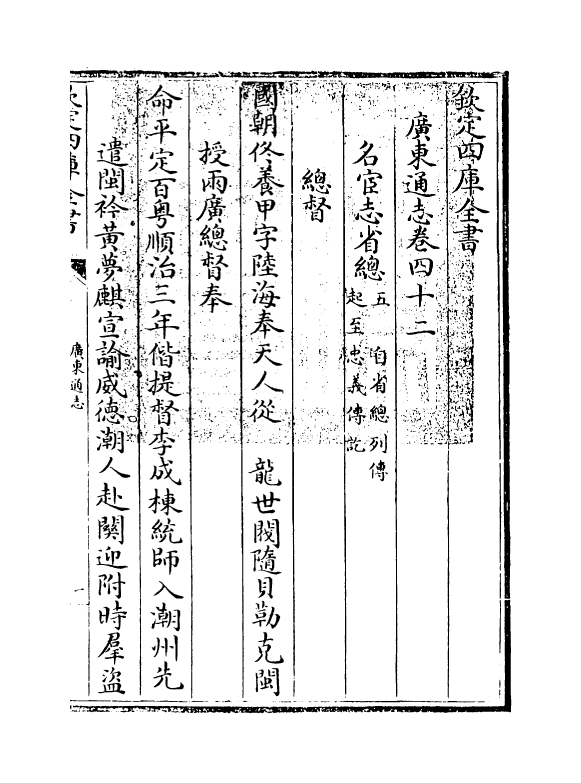 欽定四庫全書
廣東通志卷四十二
名宦志省總五 自省總列傳
起至忠義傳訖
總督
國朝佟養甲字陸海奉天人從 龍世閥隨貝勒克閩
授兩廣總督奉
命平定百粤順治三年偕提督李成棟統師入潮州先
遣閩衿黃夢麒宣諭威德潮人赴闗迎附時羣盜
欽定四庫全書
廣東通志
一